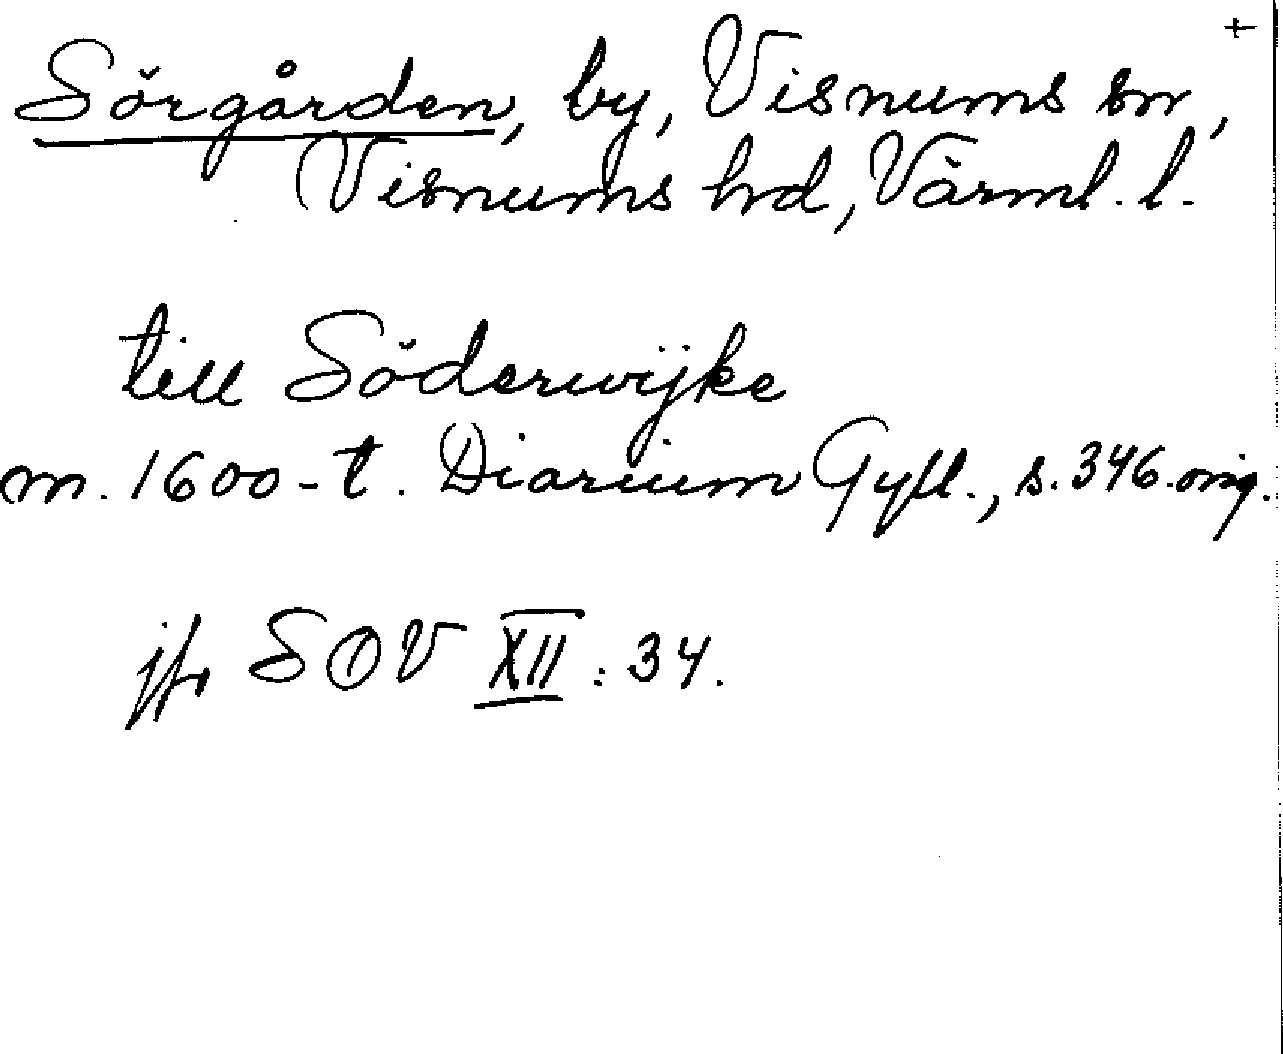 +
Sörgården, by, Visnums sn,
Visnums hd, Värml. l.
till Söderwijke
m. 1600-t. Diarium Gyll., s. 346 orig.
jfr SOV XII: 34.